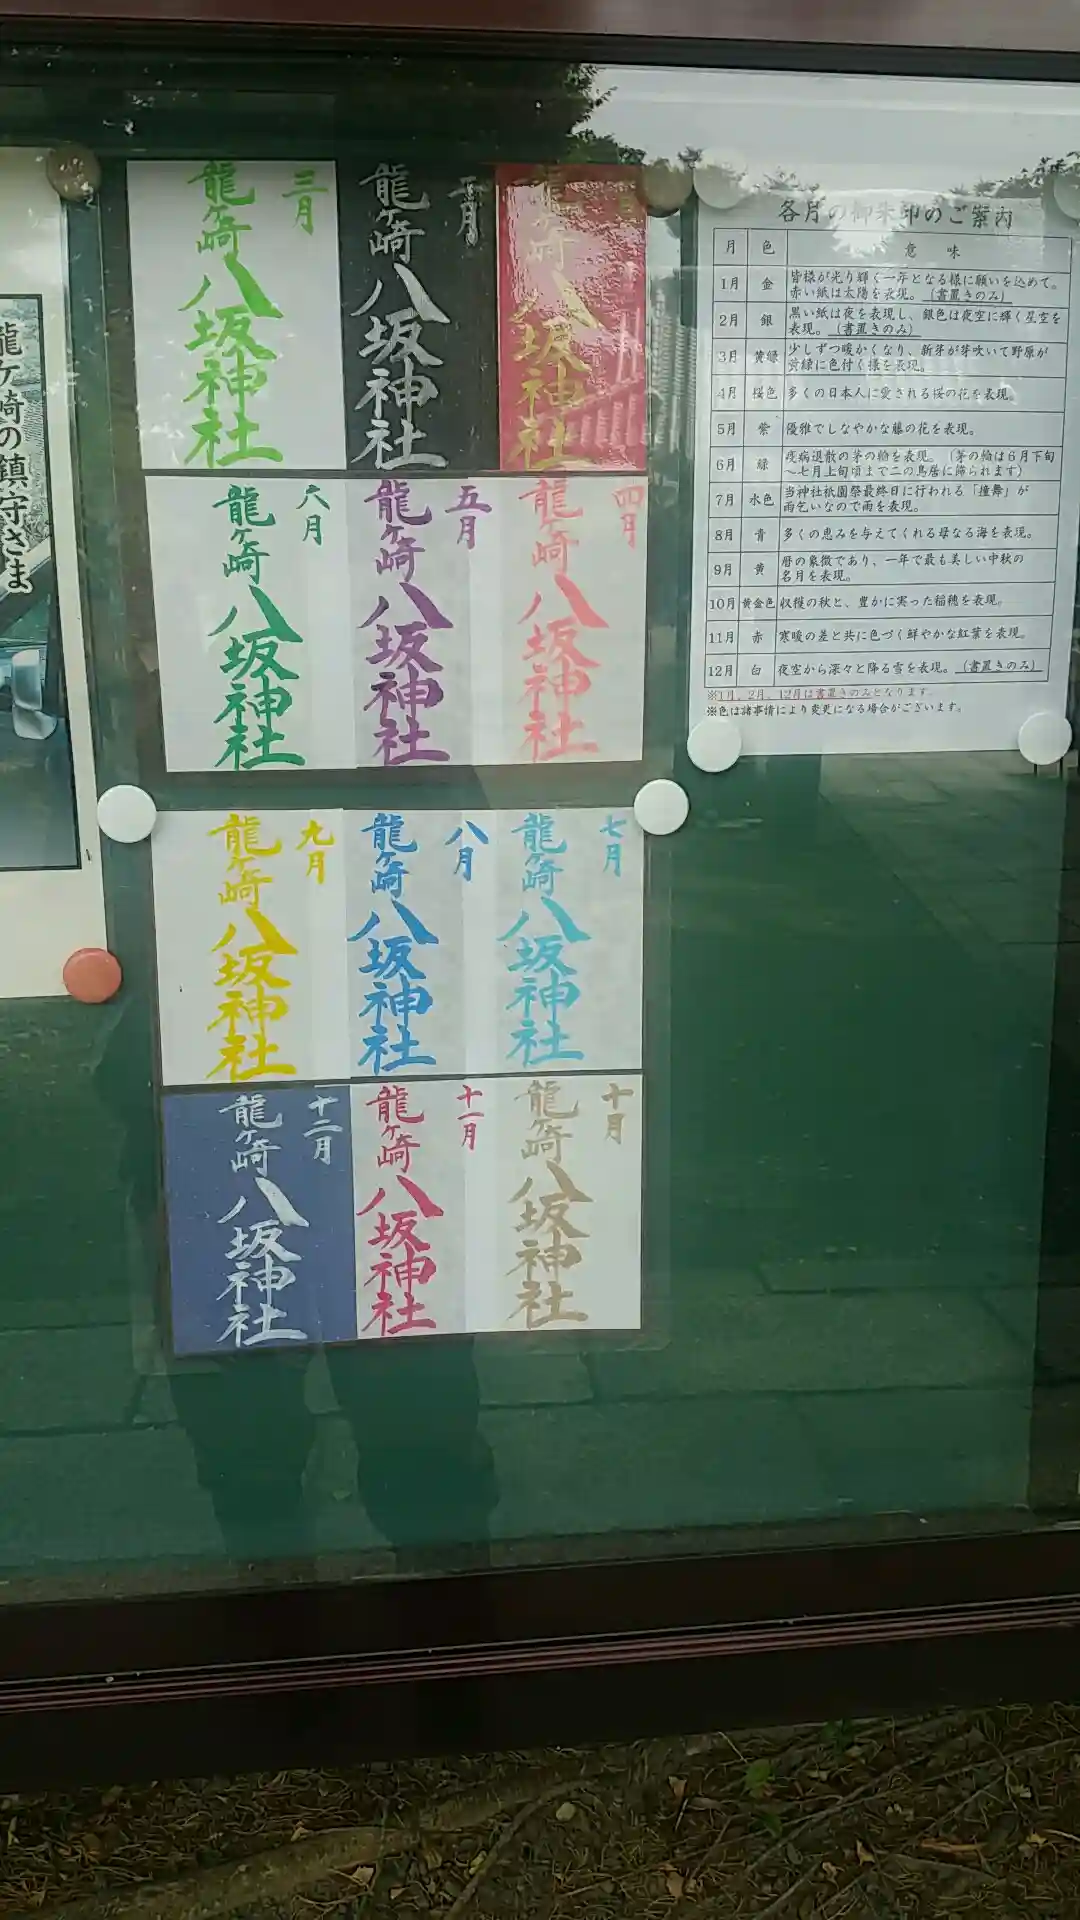 龍ヶ崎の鎮守さま
三月
龍ヶ崎
八坂神社
二月
龍ヶ崎
八坂神社
龍ヶ崎
八坂神社
六月
龍ヶ崎
八坂神社
五月
龍ヶ崎
八坂神社
四月
龍ヶ崎
八坂神社
九月
龍ヶ崎
八坂神社
八月
龍ヶ崎
八坂神社
七月
龍ヶ崎
八坂神社
十二月
龍ヶ崎
八坂神社
十一月
龍ヶ崎
八坂神社
十月
龍ヶ崎
八坂神社
各月の御朱印のご案内
月 色 意味
1月 金 皆様が光り輝く一年となる様に願いを込めて。
赤い紙は太陽を表現。(書置きのみ)
2月 銀 黒い紙は夜を表現し、銀色は夜空に輝く星空を
表現。(書置きのみ)
3月 黄緑 少しずつ暖かくなり、新芽が芽吹いて野原が
黄緑に色付く様を表現。
4月 桜色 多くの日本人に愛される桜の花を表現。
5月 紫 優雅でしなやかな藤の花を表現。
6月 緑 疫病退散の茅の輪を表現。(茅の輪は6月下旬
～七月上旬頃まで二の鳥居に飾られます)
7月 水色 当神社祇園祭最終日に行われる「撞舞」が
雨乞いなので雨を表現。
8月 青 多くの恵みを与えてくれる母なる海を表現。
9月 黄 暦の象徴であり、一年で最も美しい中秋の
名月を表現。
10月 黄金色 収穫の秋と、豊かに実った稲穂を表現。
11月 赤 寒暖の差と共に色づく鮮やかな紅葉を表現。
12月 白 夜空から深々と降る雪を表現。(書置きのみ)
※1月、2月、12月は書置きのみとなります。
※色は諸事情により変更になる場合がございます。